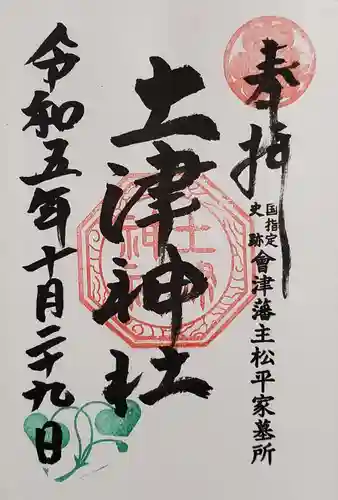 奉拝
国指定
史跡
會津藩主松平家墓所
土津神社
令和五年十月二十九日